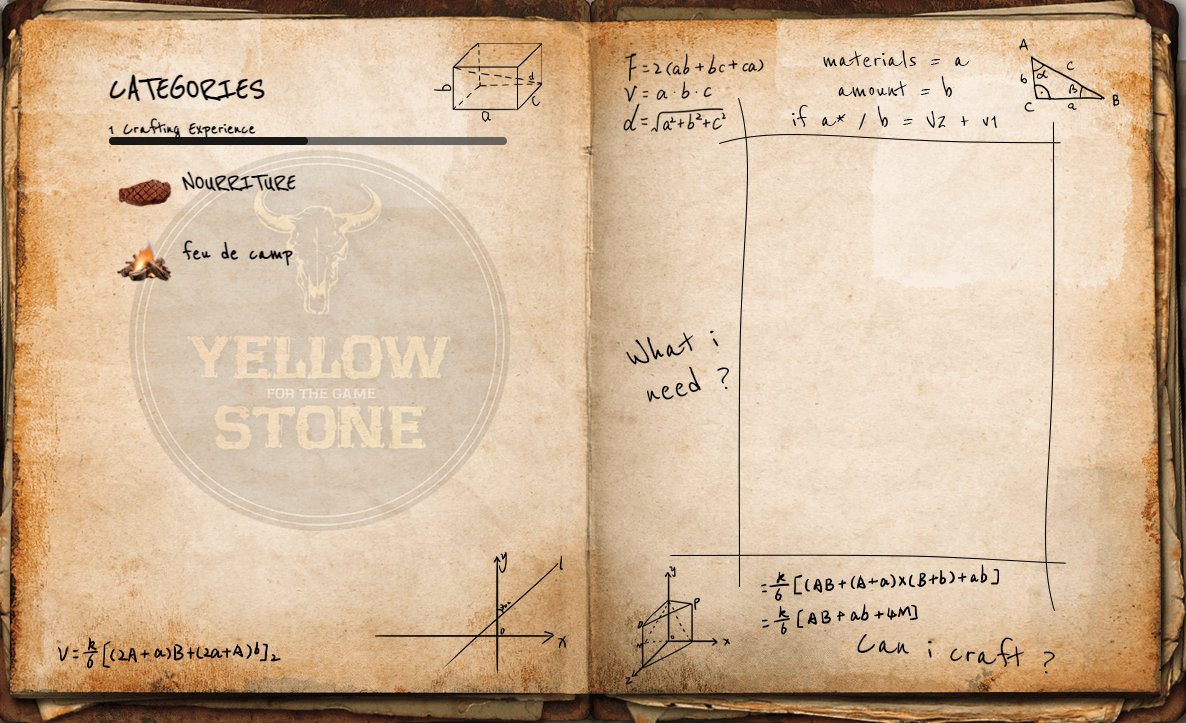 CATEGORIES
1 Crafting Experience
NOURRITURE
feu de camp
YELLOW
FOR THE GAME
STONE
b
a
c
d
V = k/6 [(2A + a)B + (2a + A)b]2
y
l
0
x
F = 2(ab + bc + ca)
V = a · b · c
d = √a²+b²+c²
materials = a
amount = b
if a* / b = √2 + √1
A
b
α
c
β
C
a
B
What i
need ?
y
P
x
z
= k/6 [(AB + (A + a)x(B + b) + ab]
= k/6 [AB + ab + 4M]
Can i craft ?